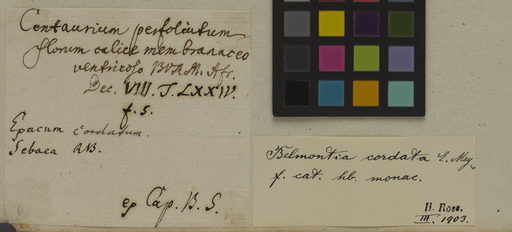 Centaurium perfoliatum
florum calice membranaceo
ventricoso BURM. Afr.
Dec. VIII. T. LXXIV.
f. 5.
Exacum cordatum.
Sebaea RB.
ex Cap. B. S.
Belmontia cordata E. Mey.
f. cat. hb. monac.
H. Ross.
III. 1903.